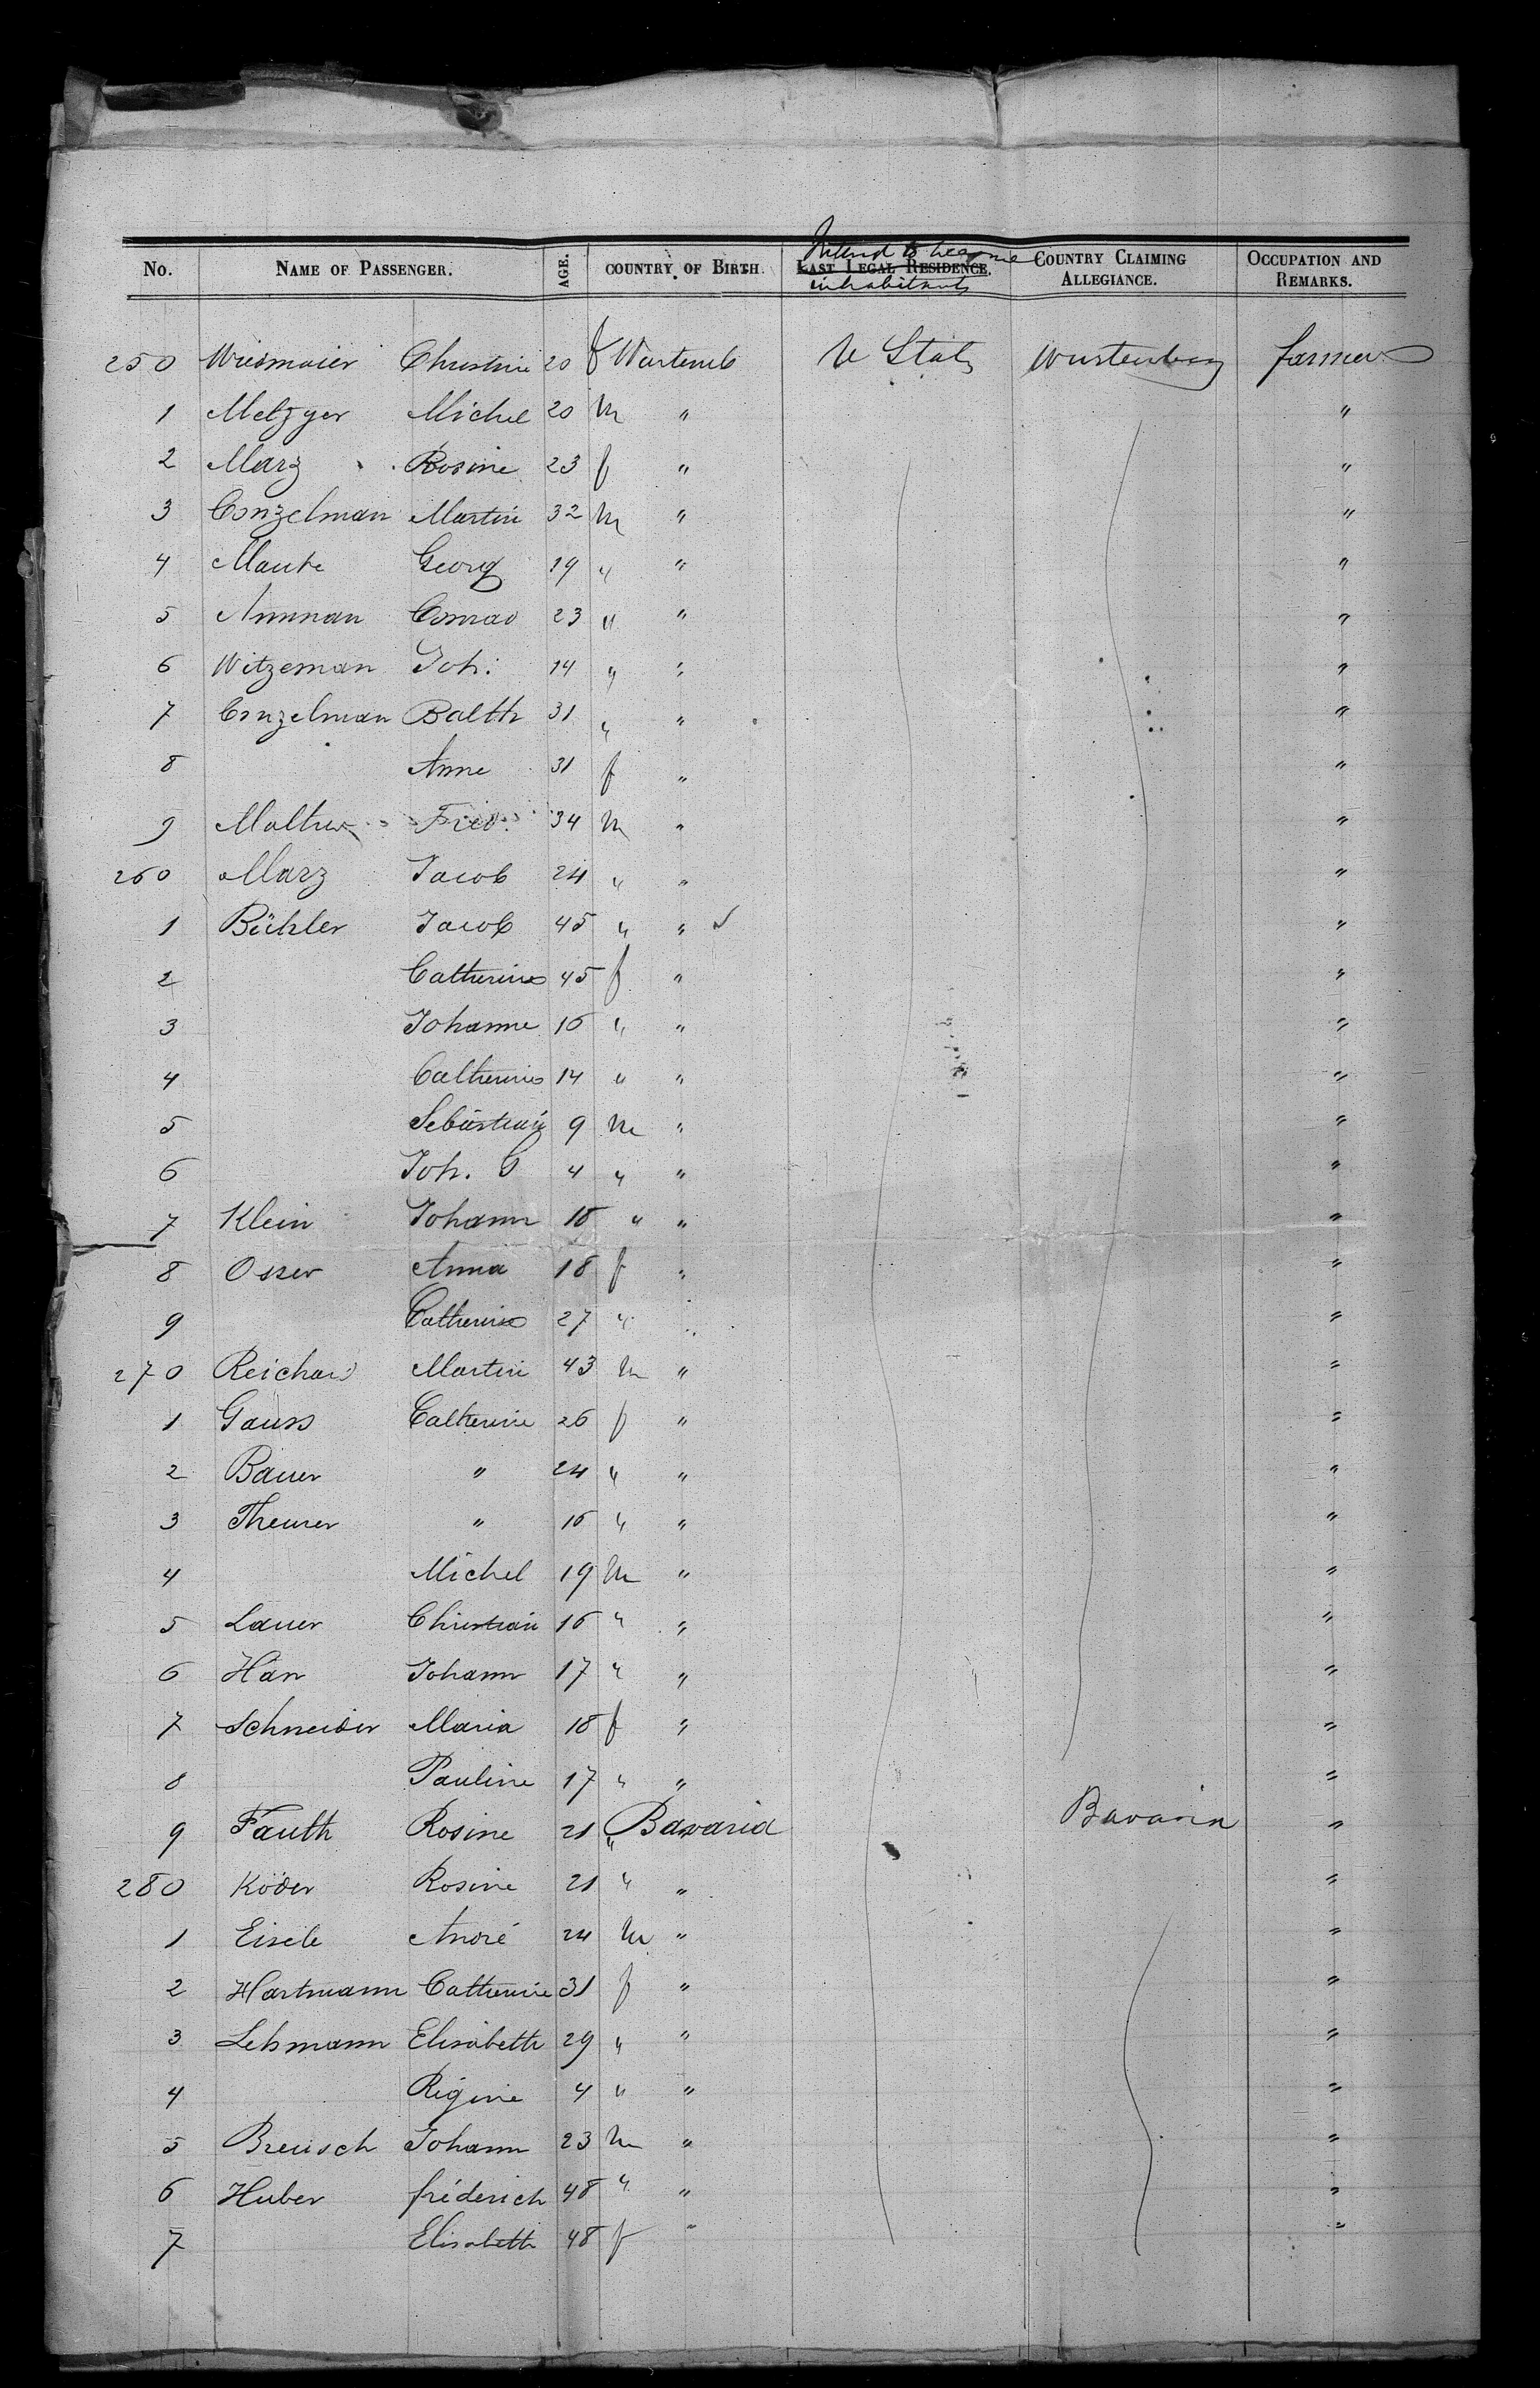 No. NAME OF PASSENGER. AGE. COUNTRY OF BIRTH. LAST LEGAL RESIDENCE. Intend to become inhabitants COUNTRY CLAIMING ALLEGIANCE. OCCUPATION AND REMARKS.
250 Wiesmaier Christine 20 f Wurtemb U States Wurtemberg farmer
1 Metzger Michel 20 m " "
2 Marz Rosine 23 f " "
3 Conzelman Martin 32 m " "
4 Maute Georg 19 " " "
5 Amman Conrad 23 " " "
6 Witzeman Joh. 14 " " "
7 Conzelman Balth 31 " " "
8 Anne 31 f " "
9 Fred. 34 m " "
260 Marz Jacob 24 " " "
1 Bühler Jacob 45 " " "
2 Catherine 45 f " "
3 Johanne 16 " " "
4 Catherine 14 " " "
5 Sebastian 9 m " "
6 Joh. G 4 " " "
7 Klein Johann 18 " " "
8 Osser Anna 18 f " "
9 Catherine 27 " " "
270 Reichard Martin 43 m " "
1 Gauss Catherine 26 f " "
2 Bauer " 24 " " "
3 Theurer " 16 " " "
4 Michel 19 m " "
5 Lauer Christian 16 " " "
6 Hän Johann 17 " " "
7 Schneider Maria 18 f " "
8 Pauline 17 " " "
9 Fauth Rosine 21 " Bavaria Bavaria "
280 Köder Rosine 21 " " "
1 Eisele André 24 m " "
2 Hartmann Catherine 31 f " "
3 Lehmann Elisabeth 29 " " "
4 Régine 4 " " "
5 Breusch Johann 23 m " "
6 Huber fréderich 48 " " "
7 Elisabeth 48 f " "